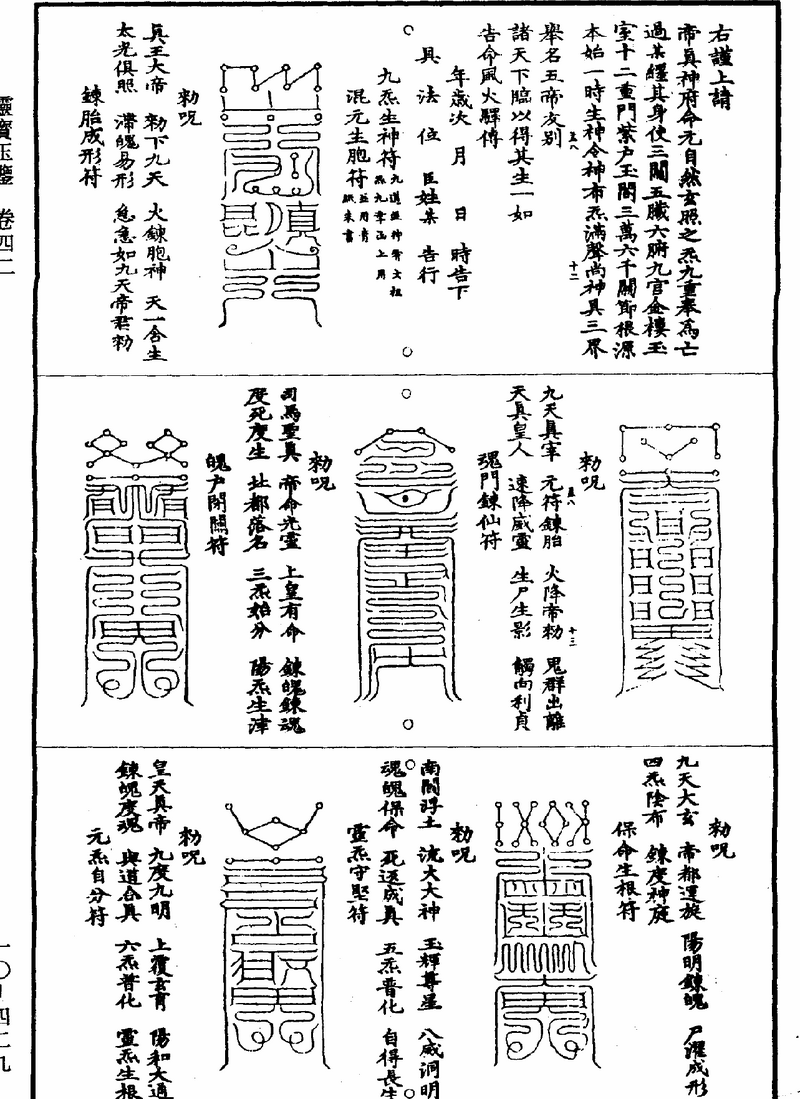 右謹上請
帝真神府命元自然玄照之炁九重奉為亡
過某纏其身使三關五臟六腑九宮金樓玉
室十二重門紫戶玉閣三萬六千關節根源
本始一時生神令神布炁滿聲尚神具三界
舉名五帝友別
諸天下臨以得其生一如
告命風火驛傳
年歲次 月 日 時告下
具法位 臣姓某 告行
九炁生神符
混元生胞符
勑呪
真王大帝 勑下九天 火鍊胞神 天一舍生
太光俱照 滯魄易形 急急如九天帝君勑
鍊胎成形符
勑呪
九天真宰 元符鍊胎 火降帝勑 鬼群出離
天真皇人 速降威靈 生尸生影 觸向利貞
魂門鍊仙符
勑呪
司馬聖真 帝命元靈 上皇有命 鍊魄鍊魂
度死度生 北都落名 三炁始分 陽炁生津
魄戶閉關符
勑呪
九天大玄 帝都運旋 陽明鍊魄 尸濯成形
四炁陰布 鍊度神庭
保命生根符
勑呪
南閻浮土 流火大神 玉輝尊星 八威洞明
魂魄保命 死返成真 五炁普化 自得長生
靈炁守堅符
勑呪
皇天真帝 九度九明 上覆玄育 陽和大通
鍊魄度魂 與道合真 六炁普化 靈炁生根
元炁自分符
靈寶玉鑒 卷四二
一〇ー四二九